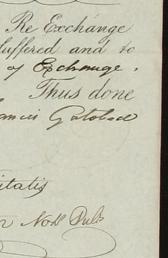 Re Exchange
suffered and to
of Exchange.
Thus done
Francis
itatis
Not Pub.